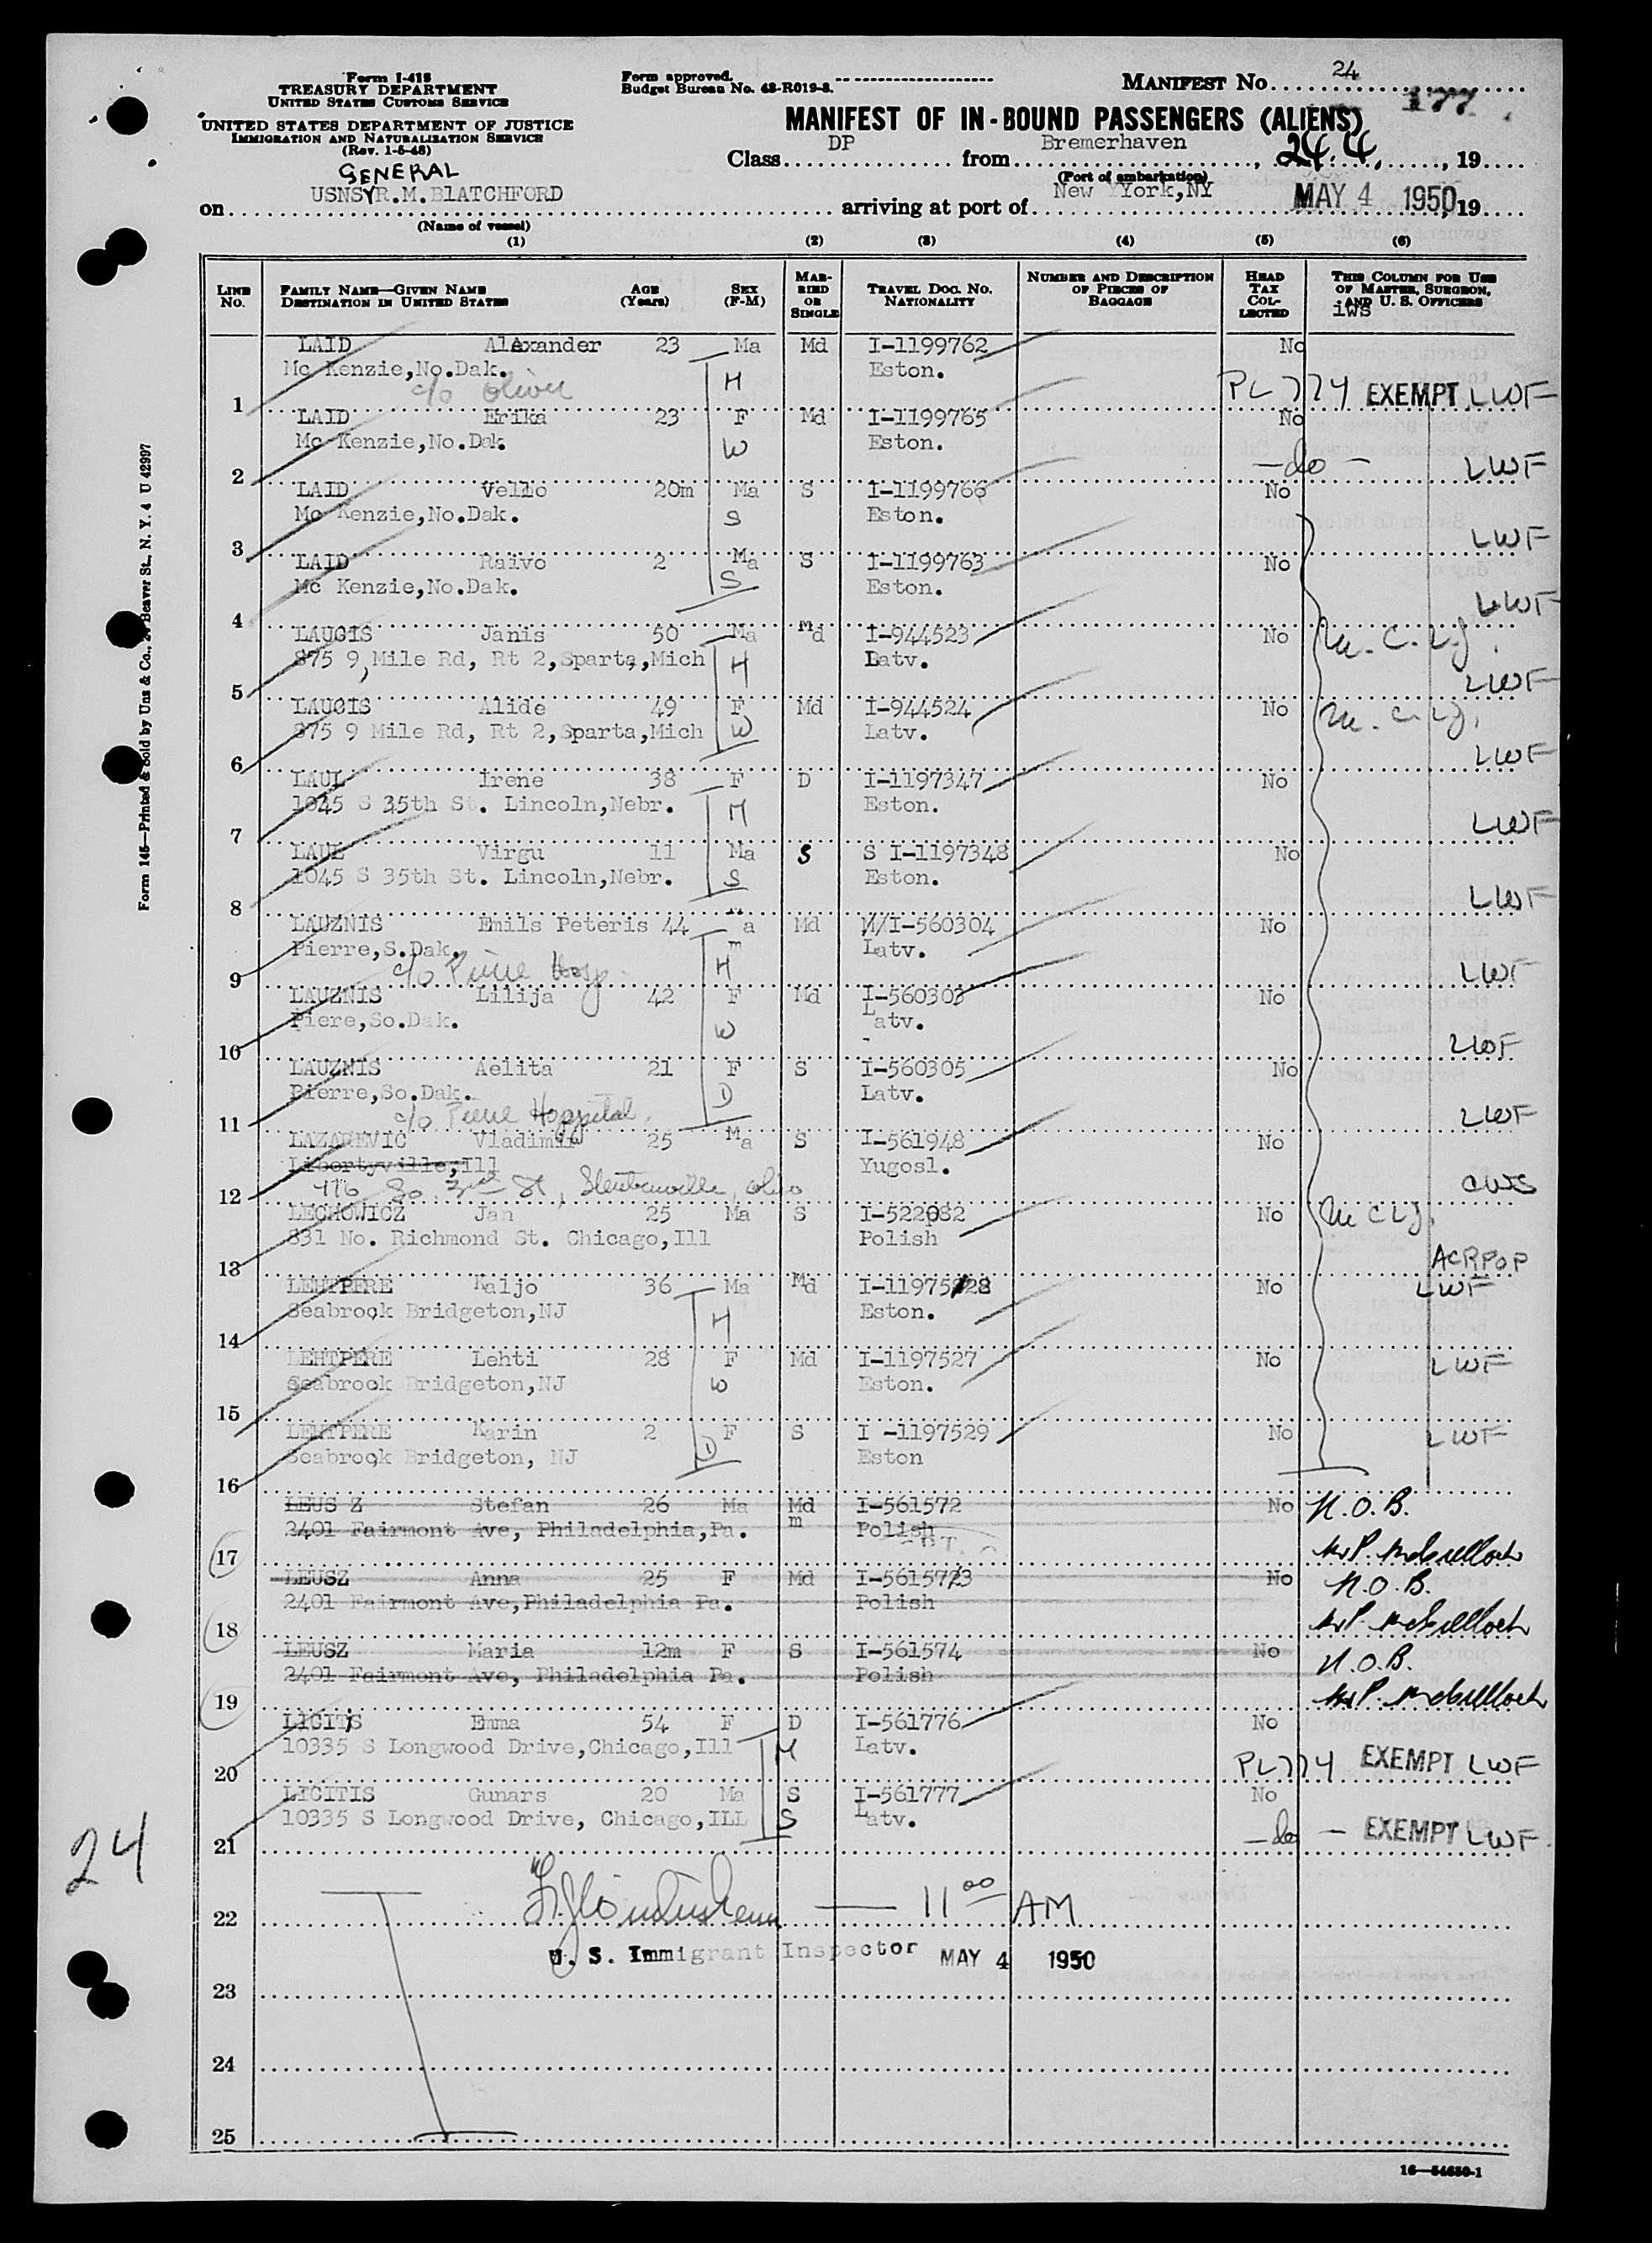 Form I-418
TREASURY DEPARTMENT
UNITED STATES CUSTOMS SERVICE
UNITED STATES DEPARTMENT OF JUSTICE
IMMIGRATION AND NATURALIZATION SERVICE
(Rev. 1-5-48)
Form approved.
Budget Bureau No. 43-R019-3.
MANIFEST No. 24
177
MANIFEST OF IN-BOUND PASSENGERS (ALIENS)
Class DP from Bremerhaven, 24.4., 19
(Port of embarkation)
GENERAL
on USNS R.M.BlATCHFORD arriving at port of New York,NY MAY 4 1950, 19
(Name of vessel)
(1) (2) (3) (4) (5) (6)
LINE No. FAMILY NAME—GIVEN NAME DESTINATION IN UNITED STATES AGE (Years) SEX (F-M) MARRIED OR SINGLE TRAVEL DOC. NO. NATIONALITY NUMBER AND DESCRIPTION OF PIECES OF BAGGAGE HEAD TAX COLLECTED THIS COLUMN FOR USE OF MASTER, SURGEON, AND U. S. OFFICERS
iws
LAID Alexander 23 Ma Md I-1199762 No
Mc Kenzie,No.Dak. H Eston.
1 c/o Oliver PL 774 EXEMPT LWF
LAID Erika 23 F Md I-1199765 No
Mc Kenzie,No.Dak. W Eston.
2 -do- LWF
LAID Vello 20m Ma S I-1199766 No
Mc Kenzie,No.Dak. S Eston.
3 LWF
LAID Raivo 2 Ma S I-1199763 No
Mc Kenzie,No.Dak. S Eston.
4 LWF
LAUGIS Janis 50 Ma Md I-944523 No
875 9 Mile Rd, Rt 2,Sparta,Mich H Latv.
5 LWF
LAUGIS Alide 49 F Md I-944524 No
875 9 Mile Rd, Rt 2,Sparta,Mich W Latv.
6 LWF
LAUL Irene 38 F D I-1197347 No
1045 S 35th St. Lincoln,Nebr. M Eston.
7 LWF
LAUL Virgu 11 Ma S S I-1197348 No
1045 S 35th St. Lincoln,Nebr. S Eston.
8 LWF
LAUZNIS Emils Peteris 44 Ma Md I-560304 No
Pierre,S.Dak. H Latv.
9 c/o Pierre Hosp. LWF
LAUZNIS Lilija 42 F Md I-560303 No
Piere,So.Dak. W Latv.
10 LWF
LAUZNIS Aelita 21 F S I-560305 No
Pierre,So.Dak. D Latv.
11 c/o Pierre Hospital. LWF
LAZAREVIC Vladimir 25 Ma S I-561948 No
Libertyville,Ill Yugosl.
12 416 So. 3rd St, Steubenville, Ohio CWS
LECHOWICZ Jan 25 Ma S I-522082 No
831 No. Richmond St. Chicago,Ill Polish
13 ACRPOP
LEHTPERE Kaljo 36 Ma Md I-1197528 No LWF
Seabrook Bridgeton,NJ H Eston.
14
LEHTPERE Lehti 28 F Md I-1197527 No LWF
Seabrook Bridgeton,NJ W Eston.
15
LEHTPERE Karin 2 F S I -1197529 No LWF
Seabrook Bridgeton, NJ D Eston
16
LEUS Z Stefan 26 Ma Md I-561572 No N.O.B.
2401 Fairmont Ave, Philadelphia,Pa. m Polish
17
LEUSZ Anna 25 F Md I-561573 No N.O.B.
2401 Fairmont Ave,Philadelphia Pa. Polish
18
LEUSZ Maria 12m F S I-561574 No N.O.B.
2401 Fairmont Ave, Philadelphia Pa. Polish
19
LICITIS Emma 54 F D I-561776 No
10335 S Longwood Drive,Chicago,Ill M Latv.
20 PL 774 EXEMPT LWF
LICITIS Gunars 20 Ma S I-561777 No
10335 S Longwood Drive, Chicago,ILL S Latv.
21 -do- EXEMPT LWF
22 11 00 AM
U. S. Immigrant Inspector MAY 4 1950
23
24
25
24
Form 145—Printed & Sold by Unz & Co., 24 Beaver St., N. Y. 4 U 42997
16—54650-1